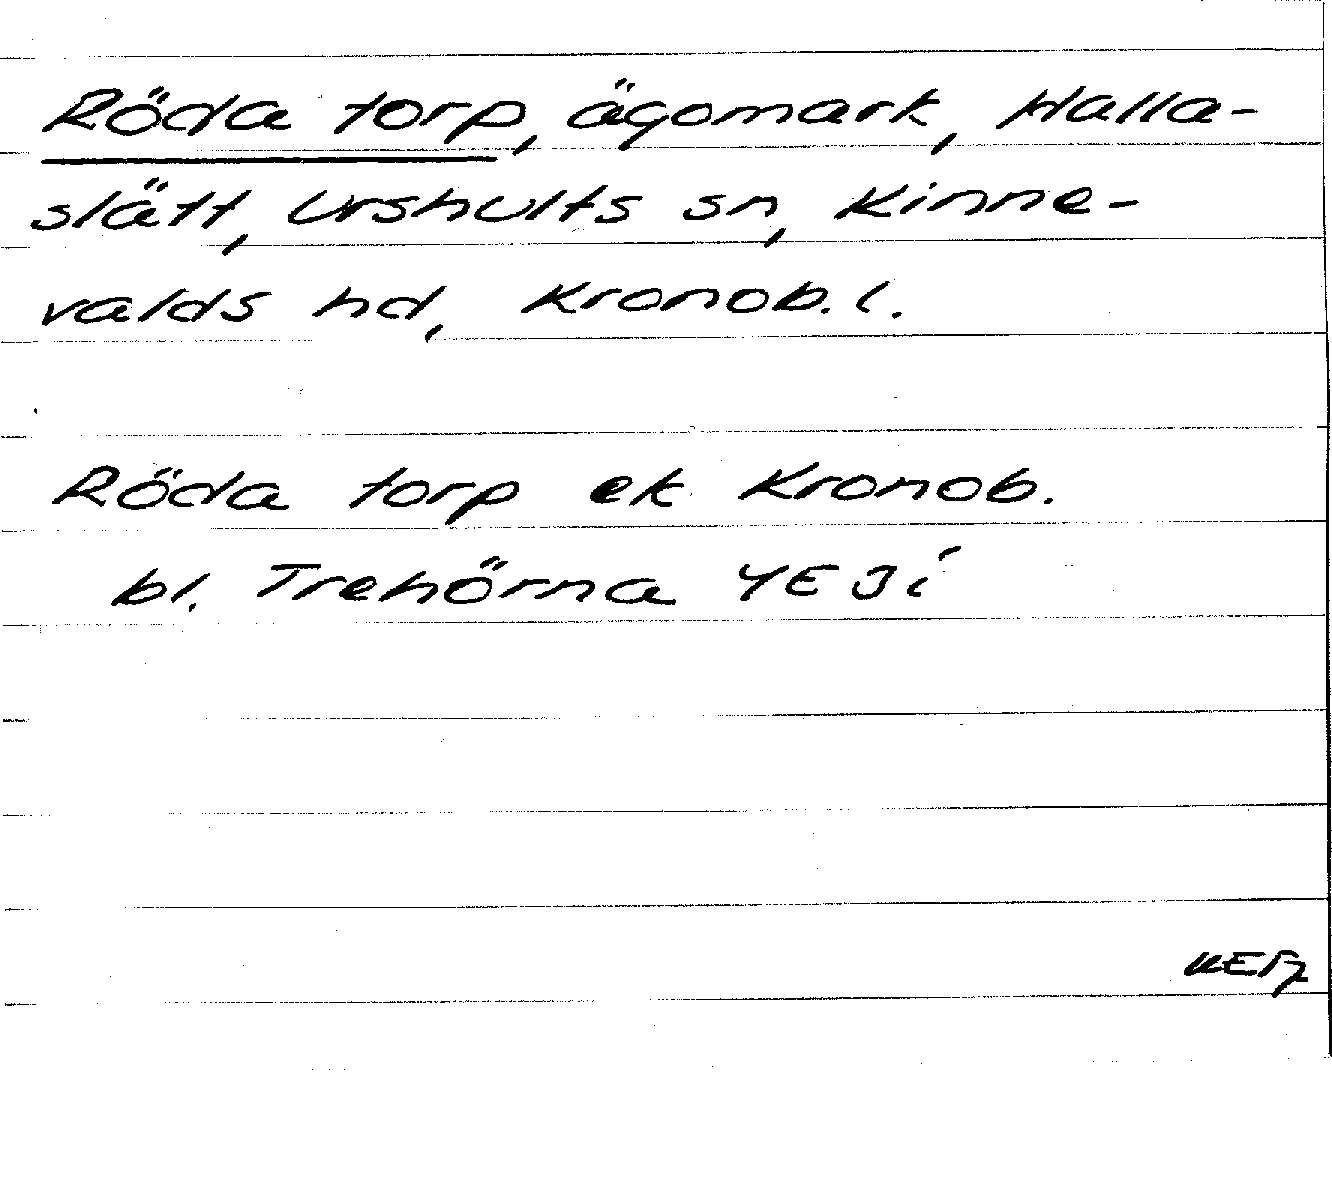 Röda torp, ägomark, Halla-
slätt, Urshults sn, Kinne-
valds hd, Kronob. l.
Röda torp ek Kronob.
bl. Trehörna 4E Ji